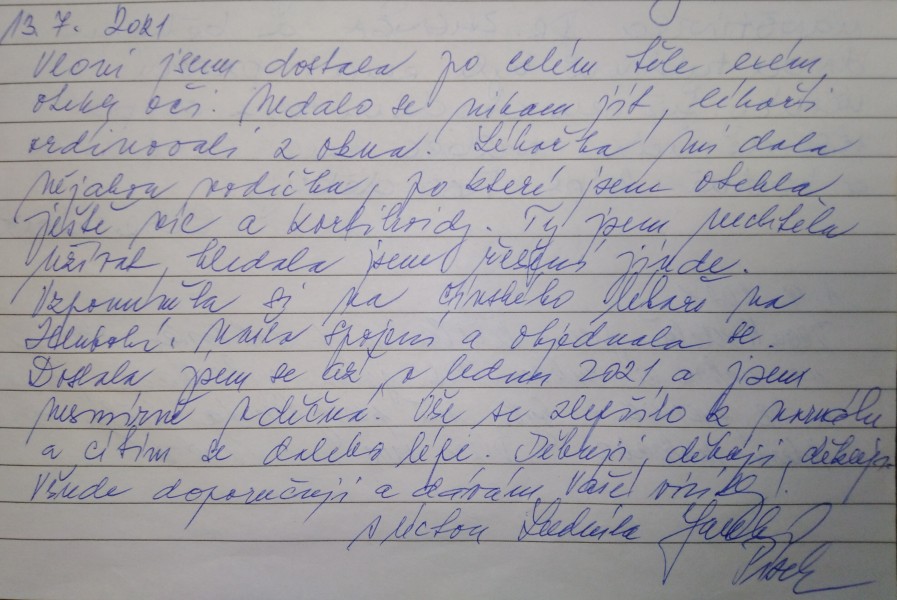 13. 7. 2021
Vloni jsem dostala po celém těle exém,
oteky očí. Nedalo se nikam jít, lékaři
ordinovali z okna. Lékařka mi dala
nějakou vodičku, po které jsem otekla
ještě víc a kortikoidy. Ty jsem nechtěla
užívat, hledala jsem řešení jinde.
Vzpomněla si na čínského lékaře na
Hluboké. Našla spojení a objednala se.
Dostala jsem se až v lednu 2021 a jsem
nesmírně vděčná. Vše se zlepšilo k normálu
a cítím se daleko lépe. Děkuji, děkuji, děkuji.
Všude doporučuji a dávám Vaše vizitky!
s úctou Ludmila
Písek